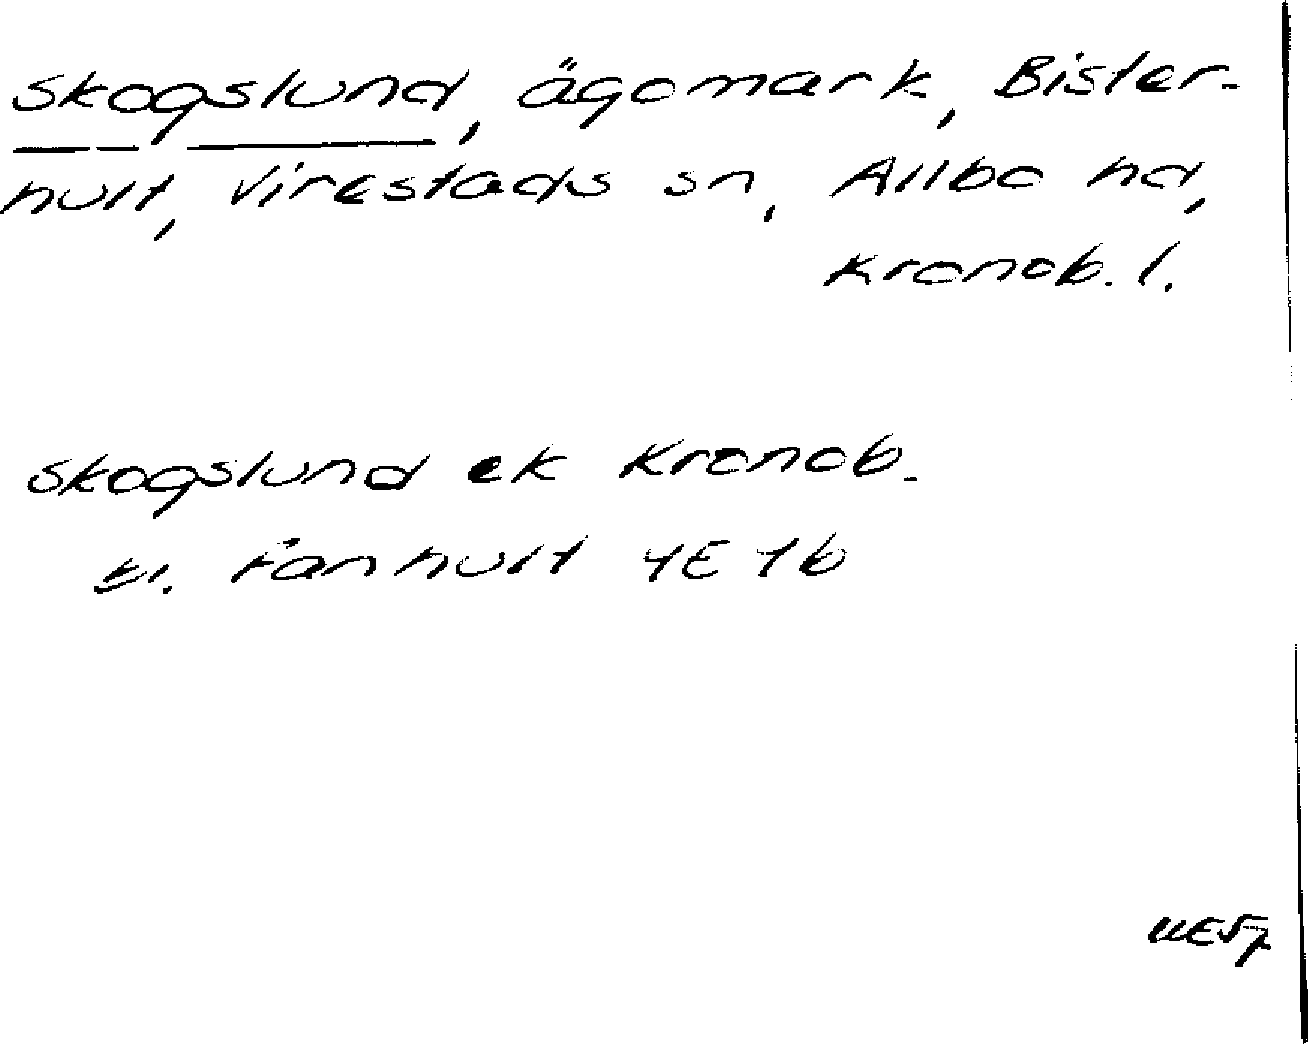 Skogslund, ägomark, Bister-
hult, Virestads sn, Allbo hd,
Kronob. l.
Skogslund ek Kronob.
bl. Fanhult 4E 1b